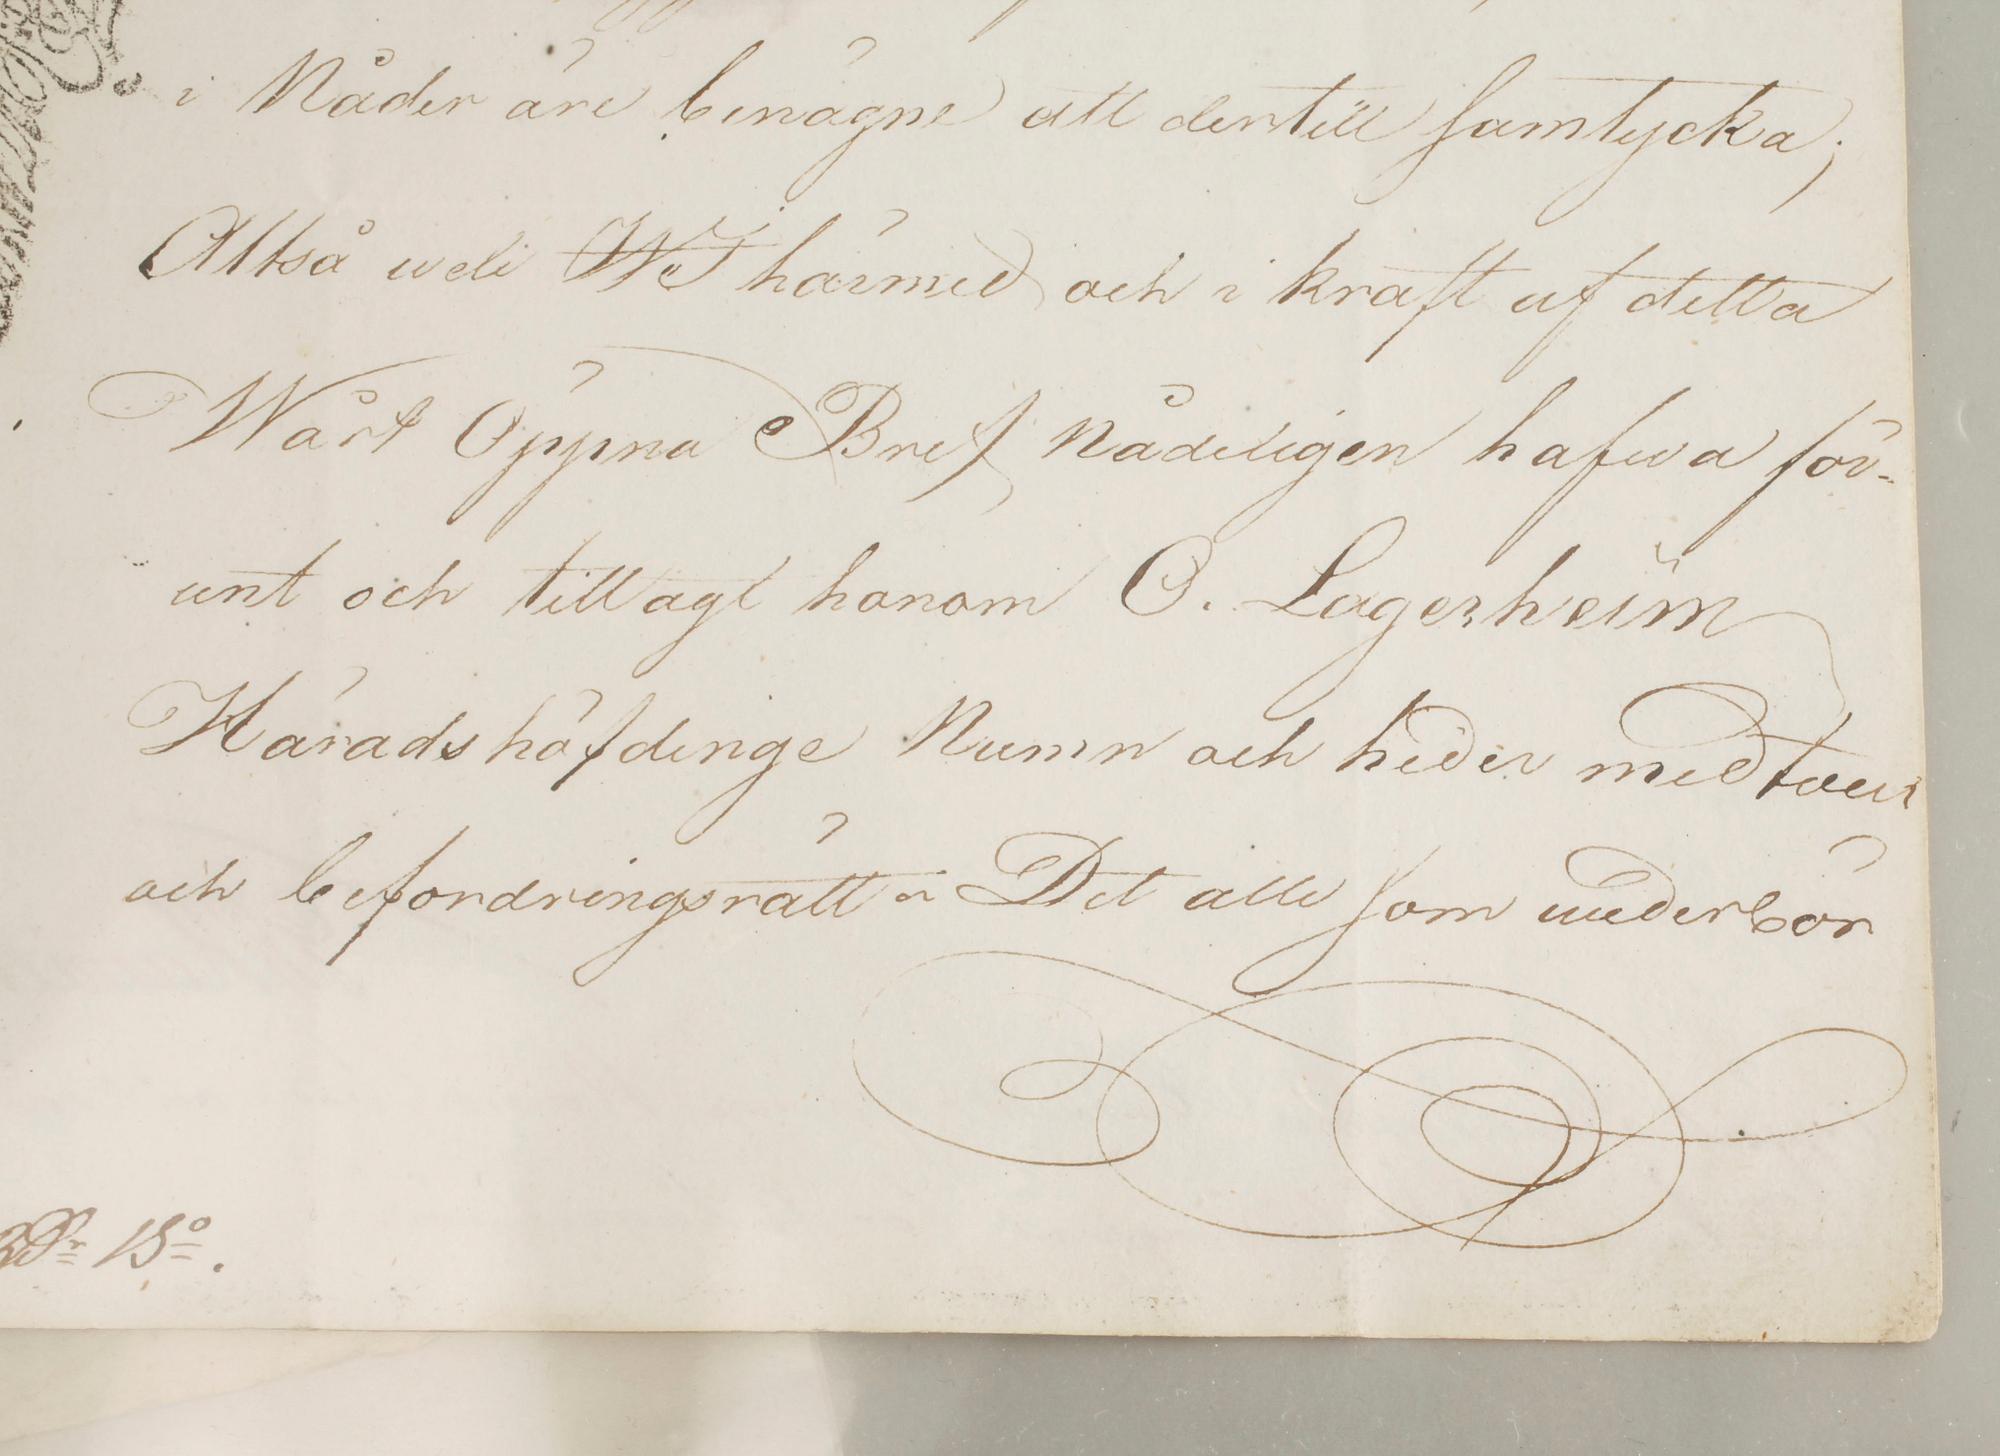 i Nåder äre benägne att dertill samtycka;
Altså wele Wi härmed och i kraft af detta
Wårt Öppna Bref Nådeligen hafwa för-
unt och tillagt honom O. Lagerheim
Häradshöfdinge Namn och heder med tour
och befordringsrätt. Det alle som wederbör
RDr 15º.